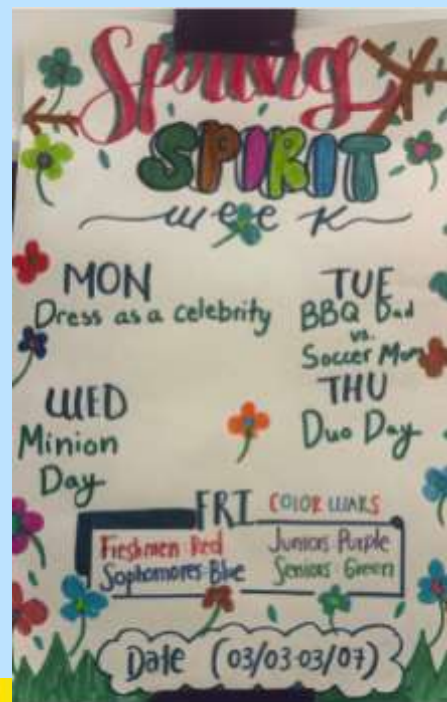 Spring
SPIRIT
week
MON
Dress as a celebrity
TUE
BBQ Dad
vs.
Soccer Mom
WED
Minion
Day
THU
Duo Day
FRI COLOR WARS
Freshmen: Red
Sophomores: Blue
Juniors: Purple
Seniors: Green
Date (03/03-03/07)